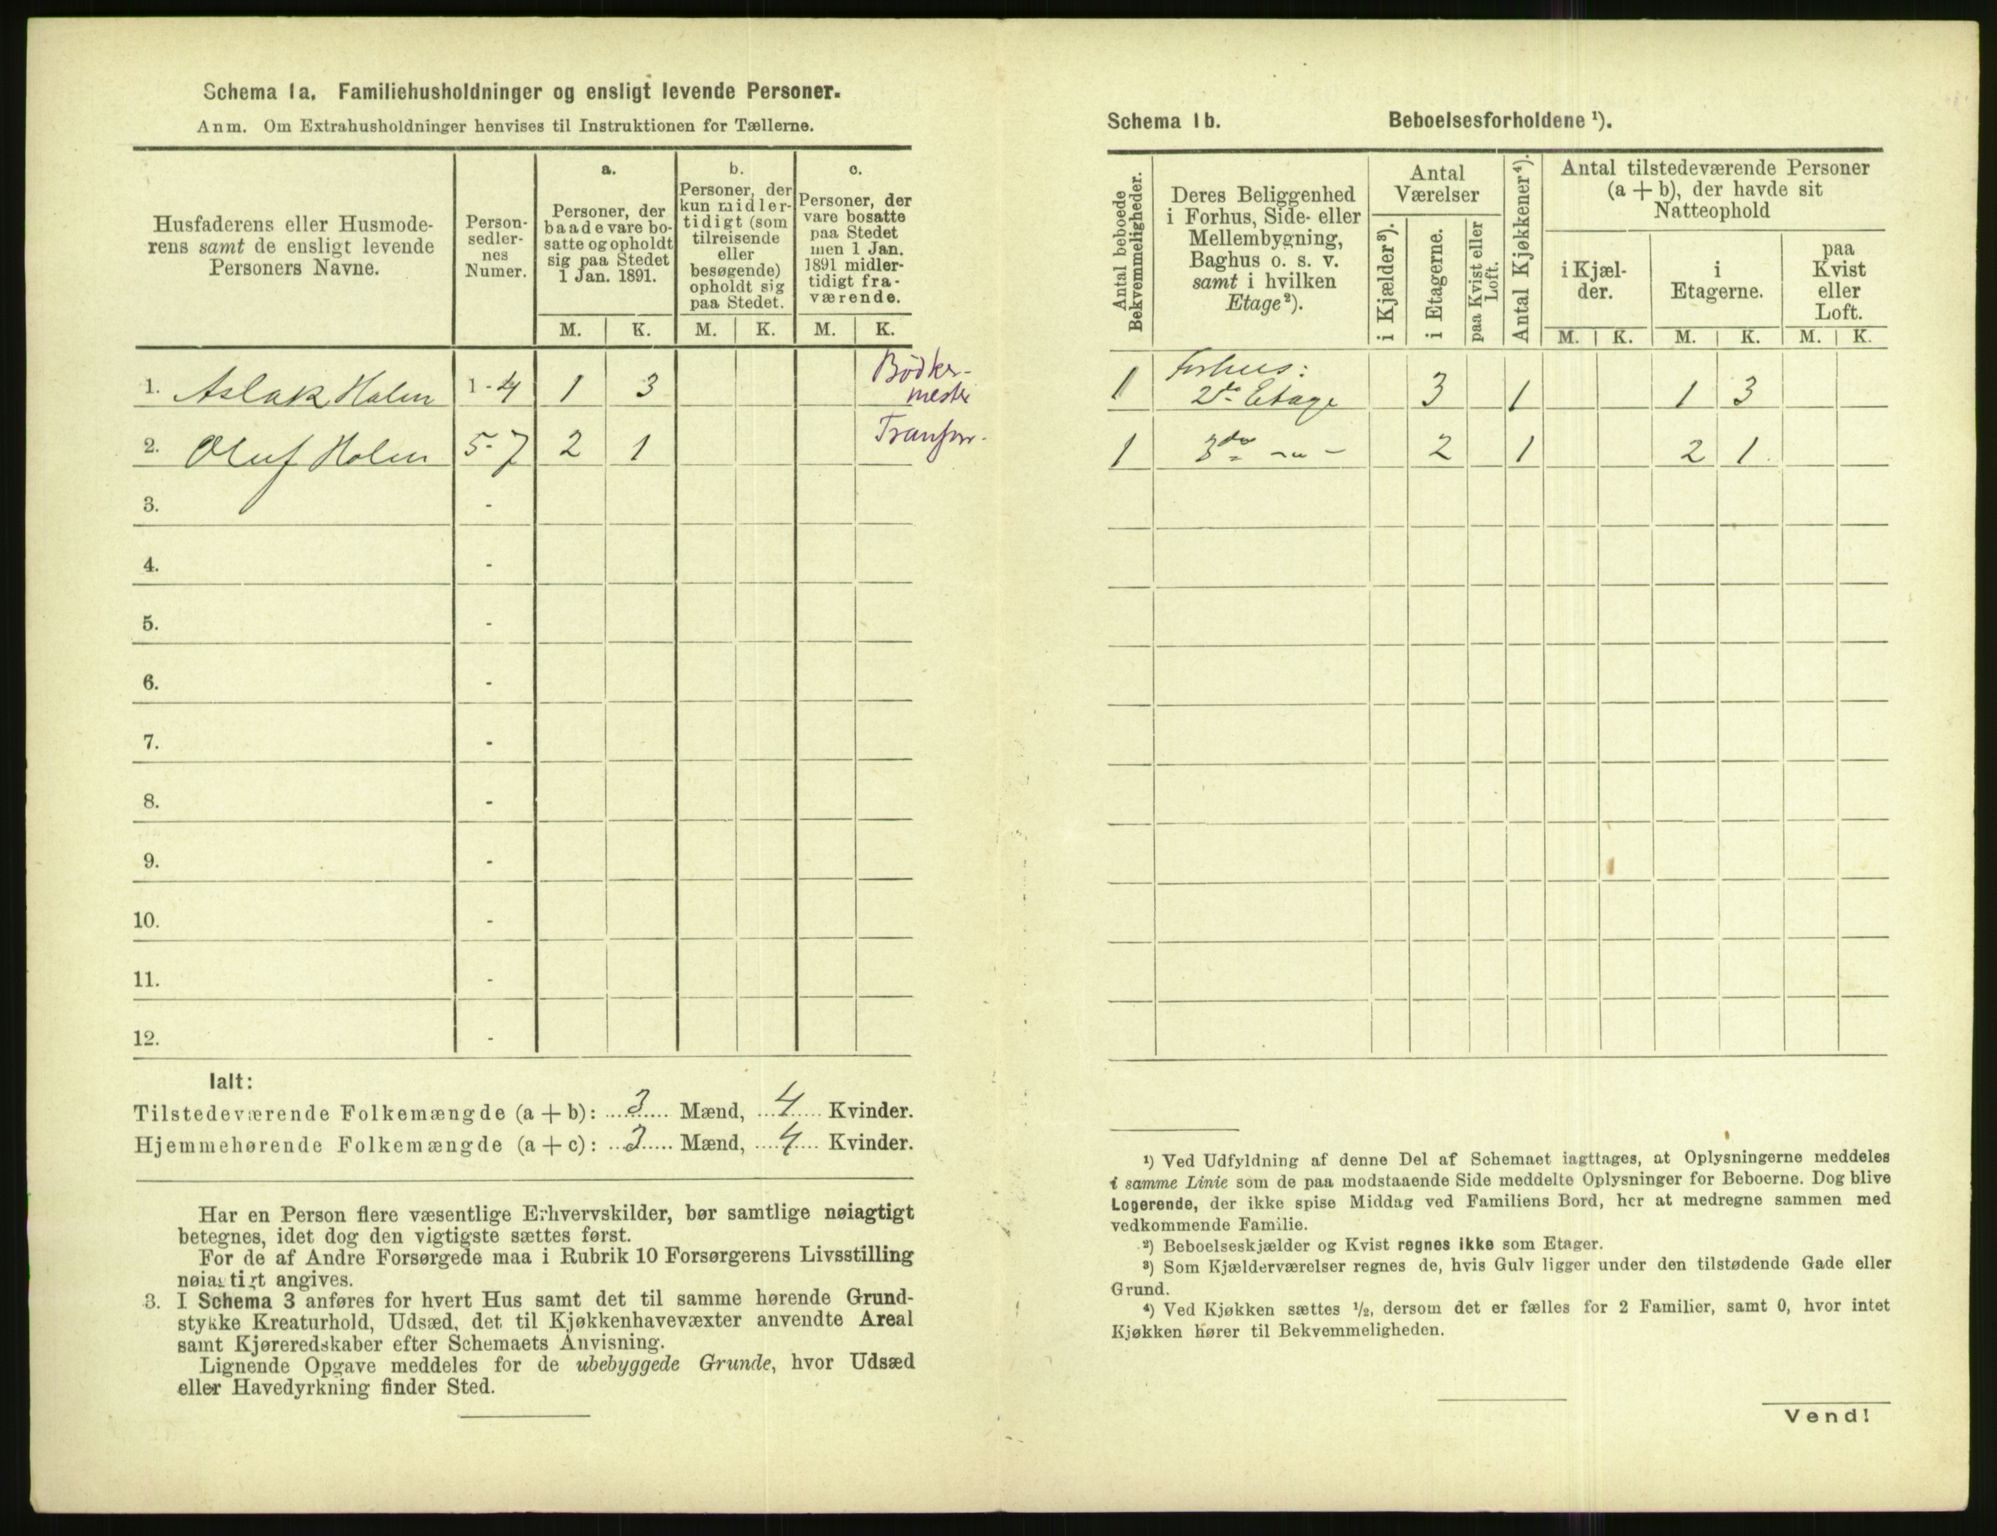 Schema 1a. Familiehusholdninger og ensligt levende Personer.
Anm. Om Extrahusholdninger henvises til Instruktionen for Tællerne.
Husfaderens eller Husmode-
rens samt de ensligt levende
Personers Navne.
Person-
sedler-
nes
Numer.
a.
Personer, der
baade vare bo-
satte og opholdt
sig paa Stedet
1 Jan. 1891.
b.
Personer, der
kun midler-
tidigt (som
tilreisende
eller
besøgende)
opholdt sig
paa Stedet.
c.
Personer, der
vare bosatte
paa Stedet
men 1 Jan.
1891 midler-
tidigt fra-
værende.
M. K. M. K. M. K.
1. Aslak Holm 1-4 1 3 Bödker-
mester
2. Oluf Holm 5-7 2 1
3. -
4. -
5. -
6. -
7. -
8. -
9. -
10. -
11. -
12. -
Ialt:
Tilstedeværende Folkemængde (a + b): 3 Mænd, 4 Kvinder.
Hjemmehørende Folkemængde (a + c): 3 Mænd, 4 Kvinder.
Har en Person flere væsentlige Erhvervskilder, bør samtlige nøiagtigt
betegnes, idet dog den vigtigste sættes først.
For de af Andre Forsørgede maa i Rubrik 10 Forsørgerens Livsstilling
nøiagtigt angives.
3. I Schema 3 anføres for hvert Hus samt det til samme hørende Grund-
stykke Kreaturhold, Udsæd, det til Kjøkkenhavevæxter anvendte Areal
samt Kjøreredskaber efter Schemaets Anvisning.
Lignende Opgave meddeles for de ubebyggede Grunde, hvor Udsæd
eller Havedyrkning finder Sted.
Schema 1b. Beboelsesforholdene ¹).
Antal beboede
Bekvemmeligheder.
Deres Beliggenhed
i Forhus, Side- eller
Mellembygning,
Baghus o. s. v.
samt i hvilken
Etage²).
Antal
Værelser
i Kjælder³).
i Etagerne.
paa Kvist eller
Loft.
Antal Kjøkkener⁴).
Antal tilstedeværende Personer
(a + b), der havde sit
Natteophold
i Kjæl-
der.
i
Etagerne.
paa
Kvist
eller
Loft.
M. K. M. K. M. K.
1 Forhus:
2de Etage 3 1 1 3
1 3die -"- 2 1 2 1
¹) Ved Udfyldning af denne Del af Schemaet iagttages, at Oplysningerne meddeles
i samme Linie som de paa modstaaende Side meddelte Oplysninger for Beboerne. Dog blive
Logerende, der ikke spise Middag ved Familiens Bord, her at medregne sammen med
vedkommende Familie.
²) Beboelseskjælder og Kvist regnes ikke som Etager.
³) Som Kjælderværelser regnes de, hvis Gulv ligger under den tilstødende Gade eller
Grund.
⁴) Ved Kjøkken sættes ½, dersom det er fælles for 2 Familier, samt 0, hvor intet
Kjøkken hører til Bekvemmeligheden.
Vend!